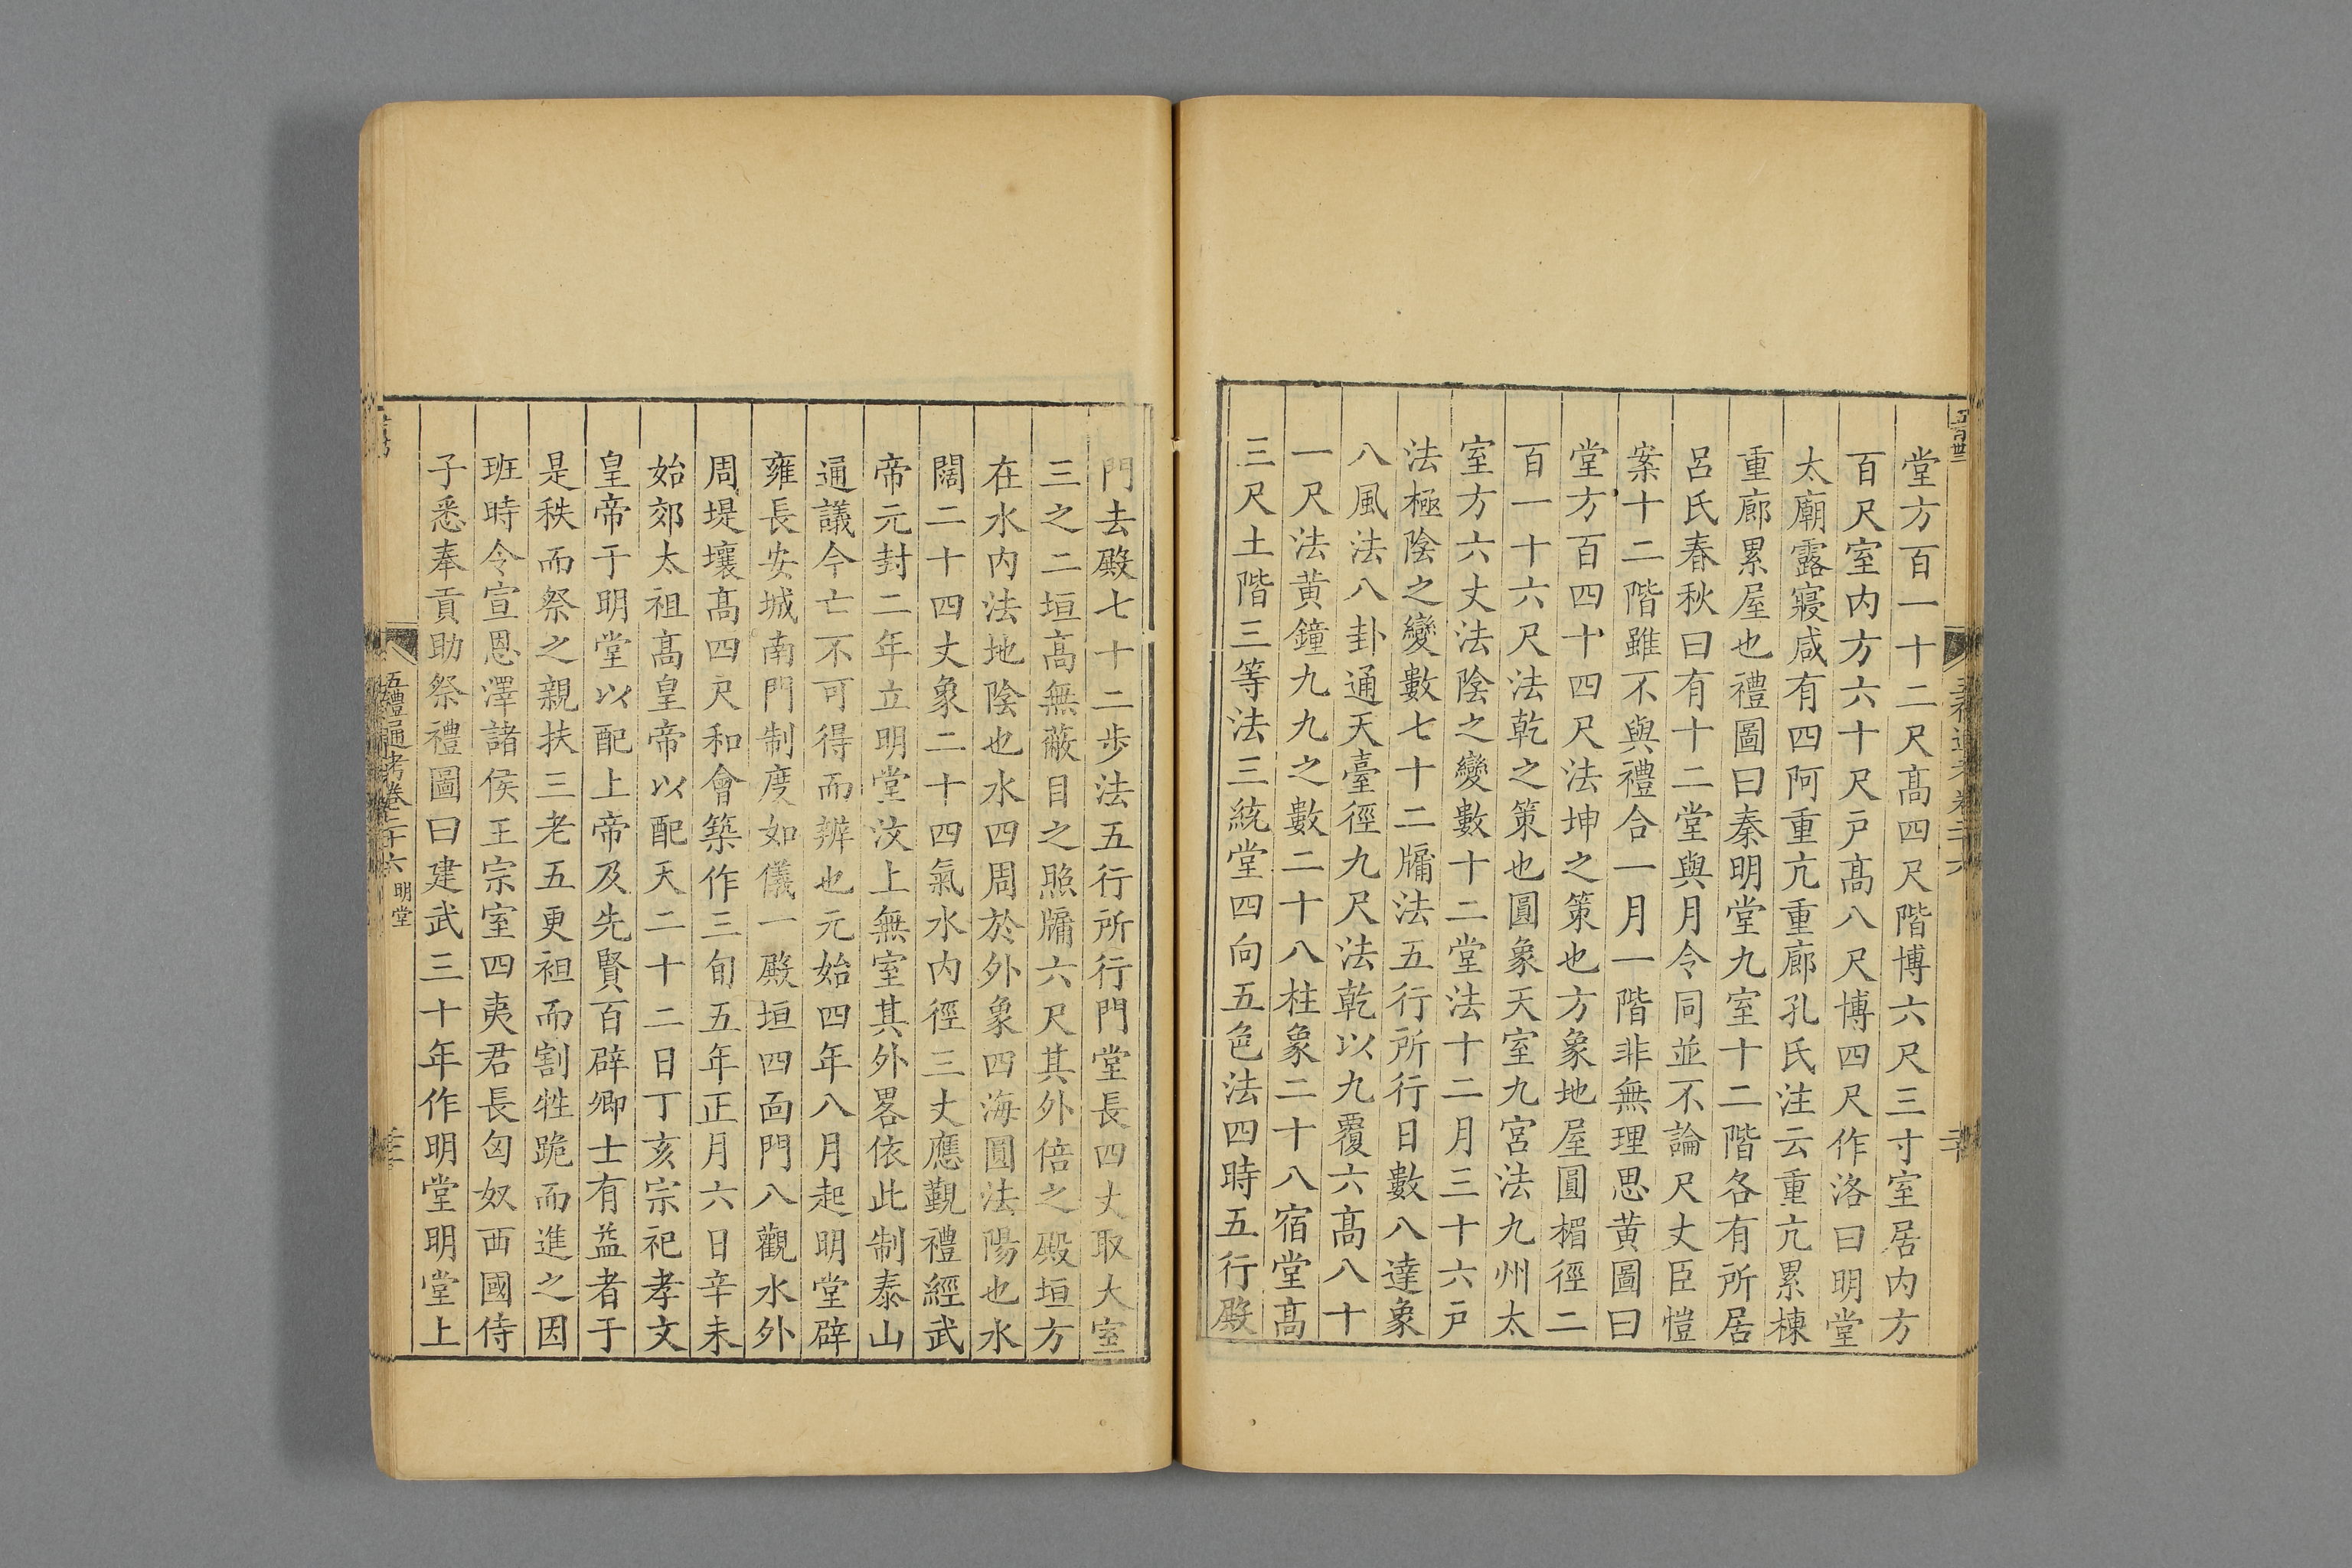 堂方百一十二尺髙四尺階博六尺三寸室居内方
百尺室内方六十尺戸髙八尺博四尺作洛曰明堂
太廟露寢咸有四阿重亢重廊孔氏注云重亢累棟
重廊累屋也禮圖曰秦明堂九室十二階各有所居
呂氏春秋曰有十二堂與月令同並不論尺丈臣愷
案十二階雖不與禮合一月一階非無理思黄圖曰
堂方百四十四尺法坤之策也方象地屋圓楣徑二
百一十六尺法乾之策也圓象天室九宮法九州太
室方六丈法陰之變數十二堂法十二月三十六戸
法極陰之變數七十二牖法五行所行日數八達象
八風法八卦通天臺徑九尺法乾以九覆六髙八十
一尺法黄鐘九九之數二十八柱象二十八宿堂髙
三尺土階三等法三統堂四向五色法四時五行殿
門去殿七十二步法五行所行門堂長四丈取太室
三之二垣髙無蔽目之照牖六尺其外倍之殿垣方
在水内法地陰也水四周於外象四海圓法陽也水
闊二十四丈象二十四氣水内徑三丈應覲禮經武
帝元封二年立明堂汶上無室其外畧依此制泰山
通議今亡不可得而辨也元始四年八月起明堂辟
雍長安城南門制度如儀一殿垣四面門八觀水外
周堤壤髙四尺和會築作三旬五年正月六日辛未
始郊太祖髙皇帝以配天二十二日丁亥宗祀孝文
皇帝于明堂以配上帝及先賢百辟卿士有益者于
是秩而祭之親扶三老五更袒而割牲跪而進之因
班時令宣恩澤諸侯王宗室四夷君長匈奴西國侍
子悉奉貢助祭禮圖曰建武三十年作明堂明堂上
五禮通考卷二十六 明堂